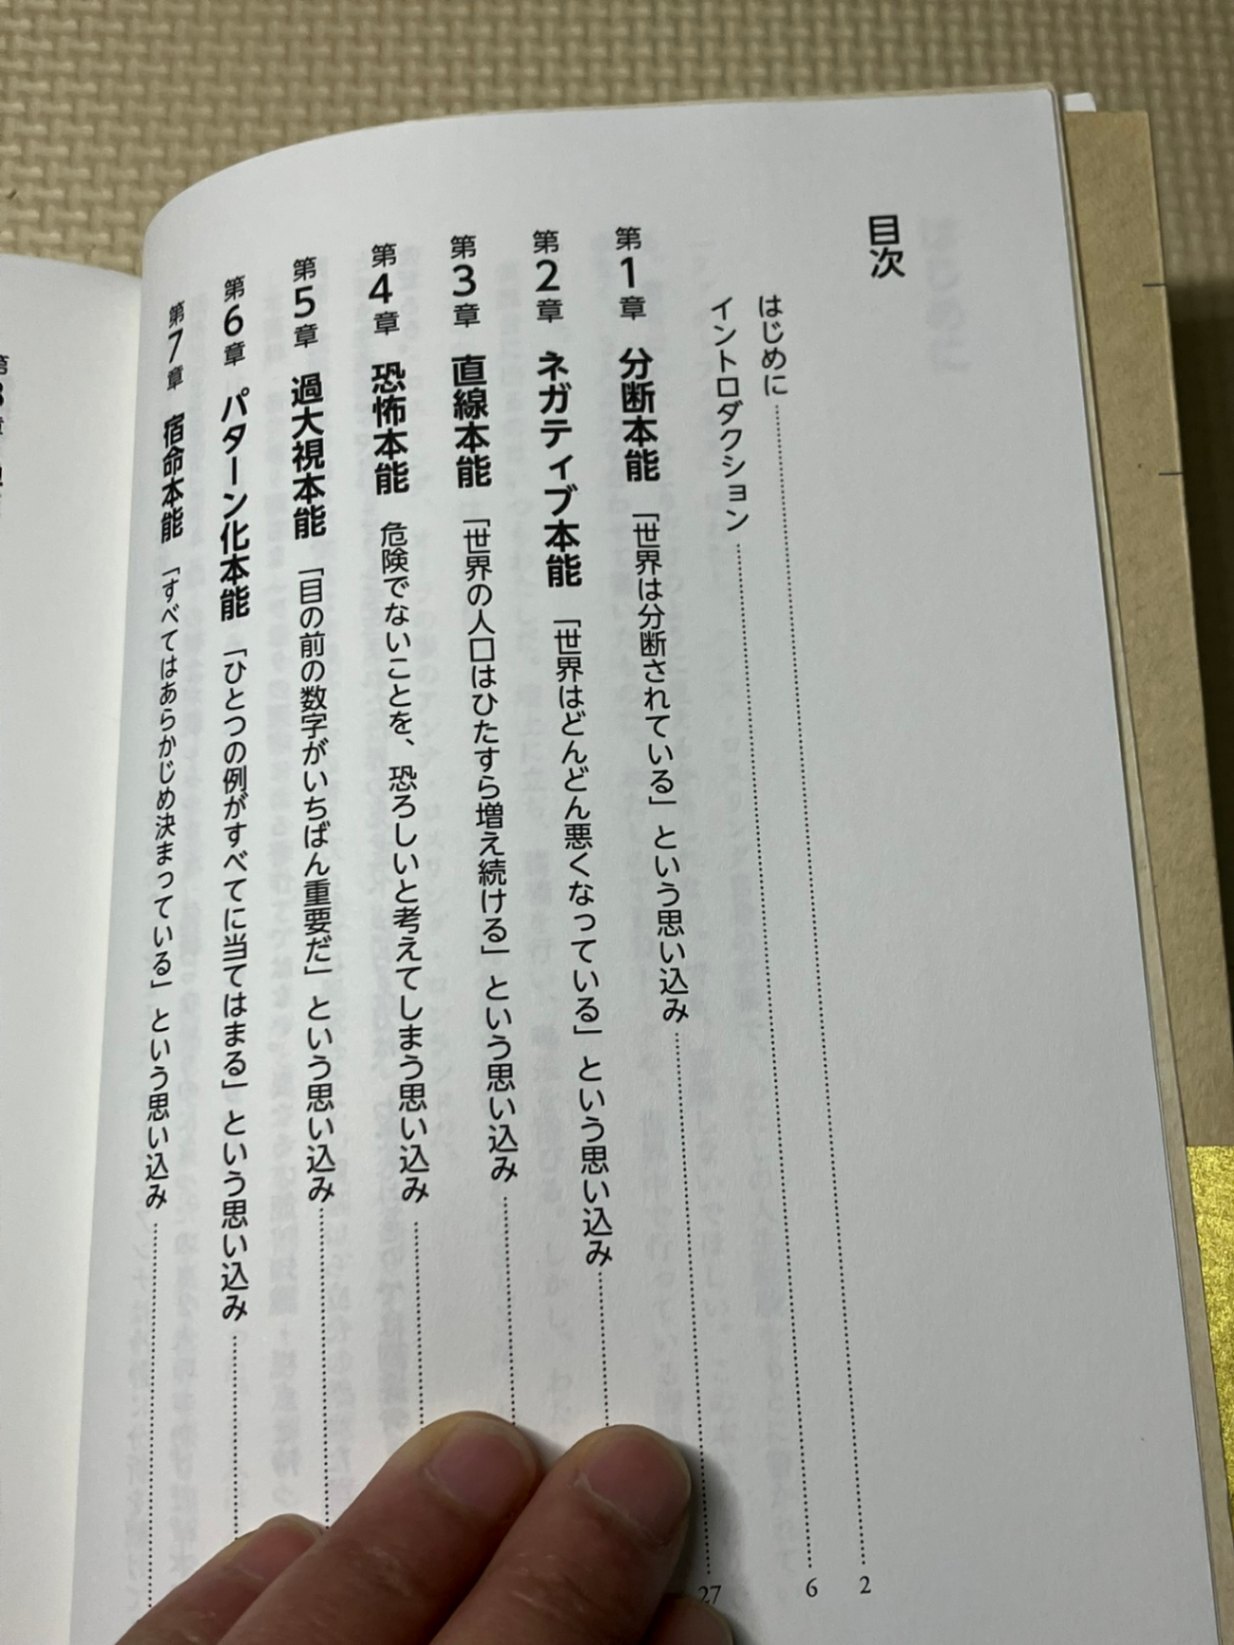 目次
はじめに 2
イントロダクション 6
第1章 分断本能 「世界は分断されている」という思い込み 27
第2章 ネガティブ本能 「世界はどんどん悪くなっている」という思い込み
第3章 直線本能 「世界の人口はひたすら増え続ける」という思い込み
第4章 恐怖本能 危険でないことを、恐ろしいと考えてしまう思い込み
第5章 過大視本能 「目の前の数字がいちばん重要だ」という思い込み
第6章 パターン化本能 「ひとつの例がすべてに当てはまる」という思い込み
第7章 宿命本能 「すべてはあらかじめ決まっている」という思い込み